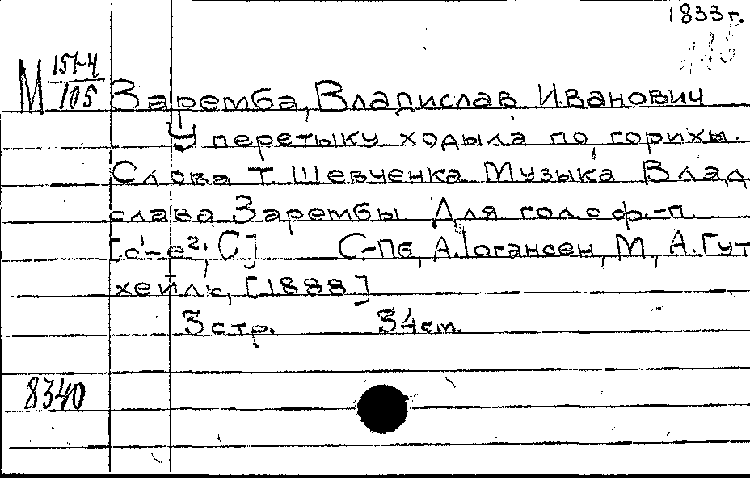 1833 г.
М 157-4/105 Заремба, Владислав Иванович
У перетыку ходыла по горихы.
Слова Т. Шевченка Музыка Влад
слава Зарембы Для голос ф.-п.
[c¹-e², C] С-Пб, А. Iогансен, М., А. Гут
хейль, [1888]
3 стр. 34 см.
8340